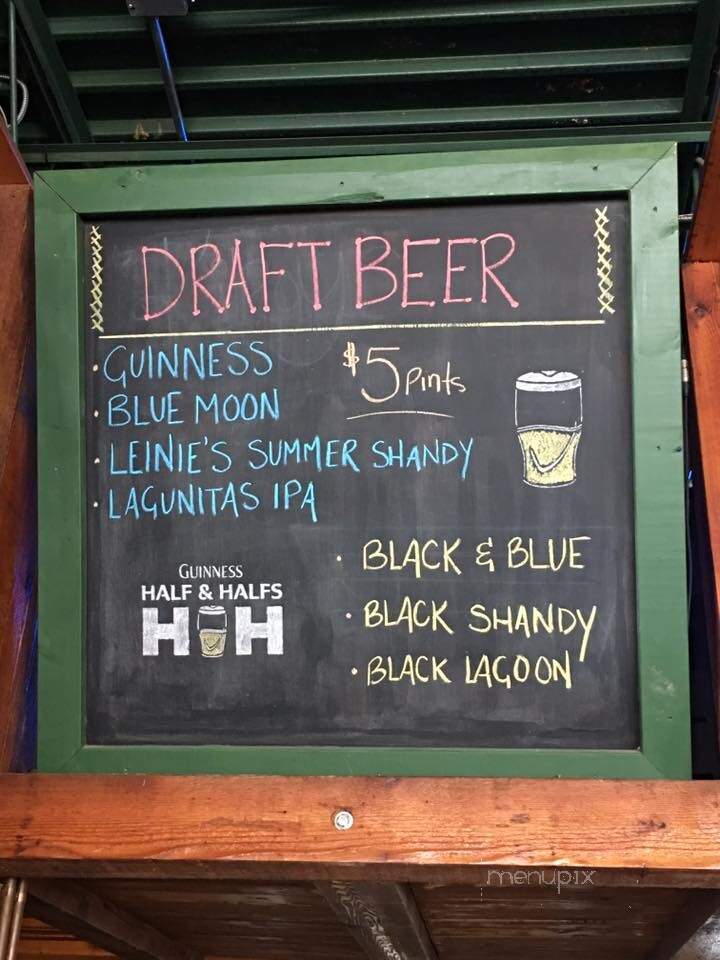 DRAFT BEER
• GUINNESS
$5 Pints
• BLUE MOON
• LEINIE'S SUMMER SHANDY
• LAGUNITAS IPA
GUINNESS
HALF & HALFS
H H
• BLACK & BLUE
• BLACK SHANDY
• BLACK LAGOON
menupix